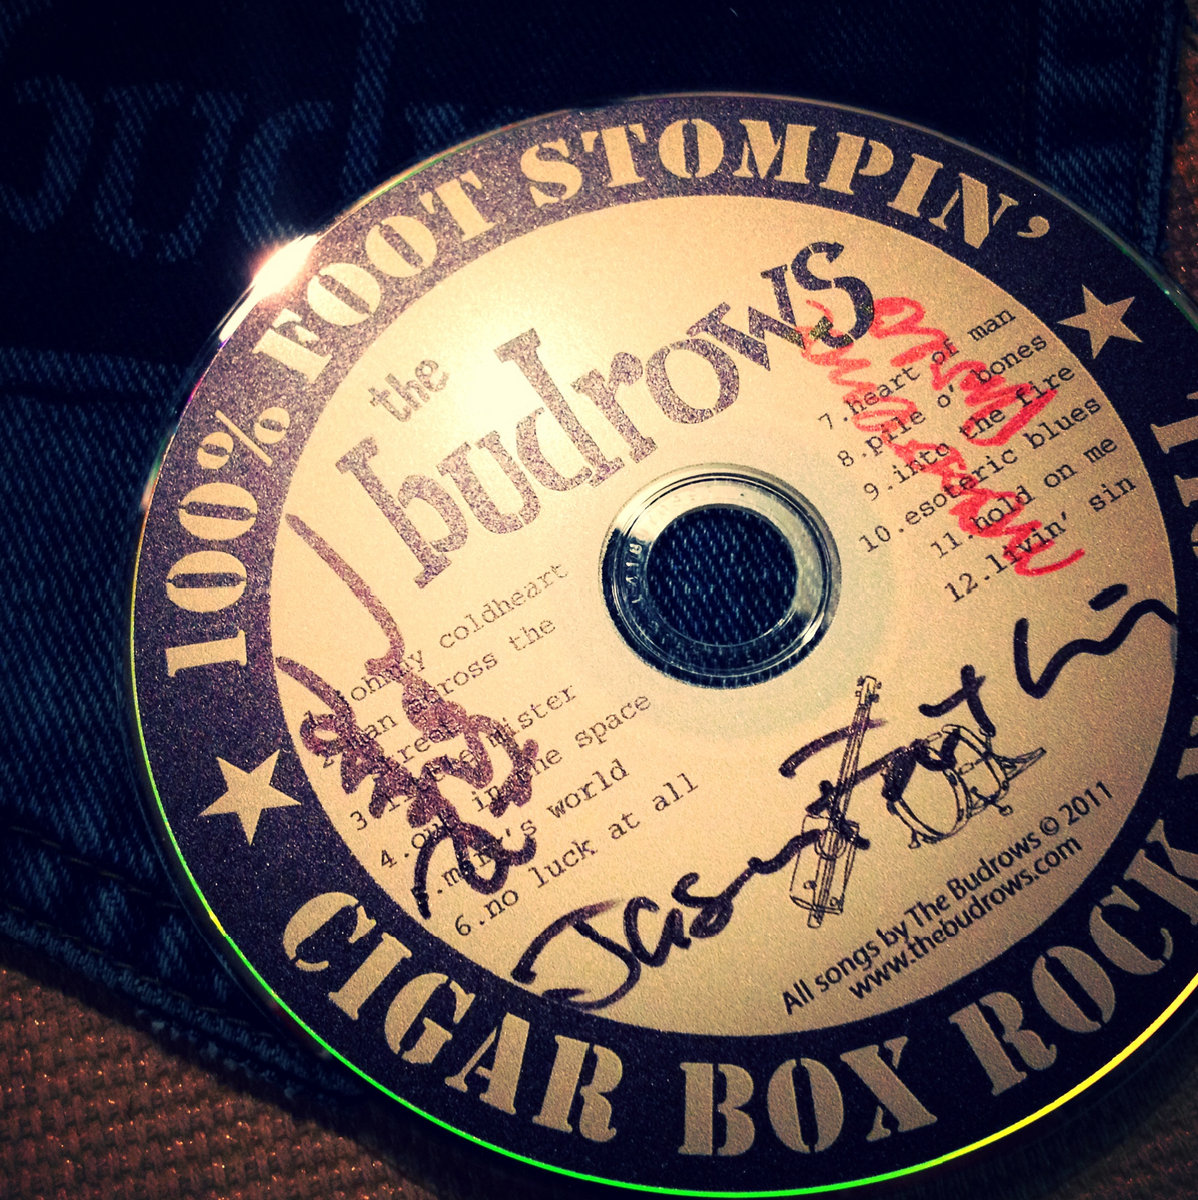 100% FOOT STOMPIN'
the
budrows
1.johnny coldheart
2.man across the
street
3.i see mister
4.out in the space
5.man's world
6.no luck at all
7.heart of man
8.pile o' bones
9.into the fire
10.esoteric blues
11.hold on me
12.livin' sin
Jason
All songs by The Budrows © 2011
www.thebudrows.com
CIGAR BOX ROCK
L418